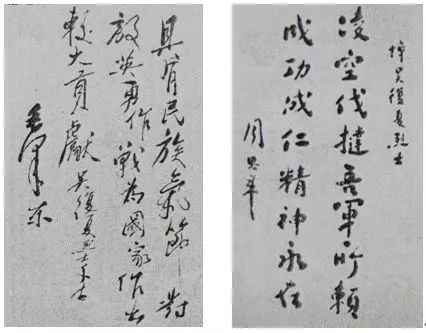 具有民族氣節 對
敵英勇作戰為國家作出
較大貢獻吳復夏烈士
毛澤東
悼吳復夏烈士
凌空伐撻吾軍所賴
成功成仁精神永在
周恩來